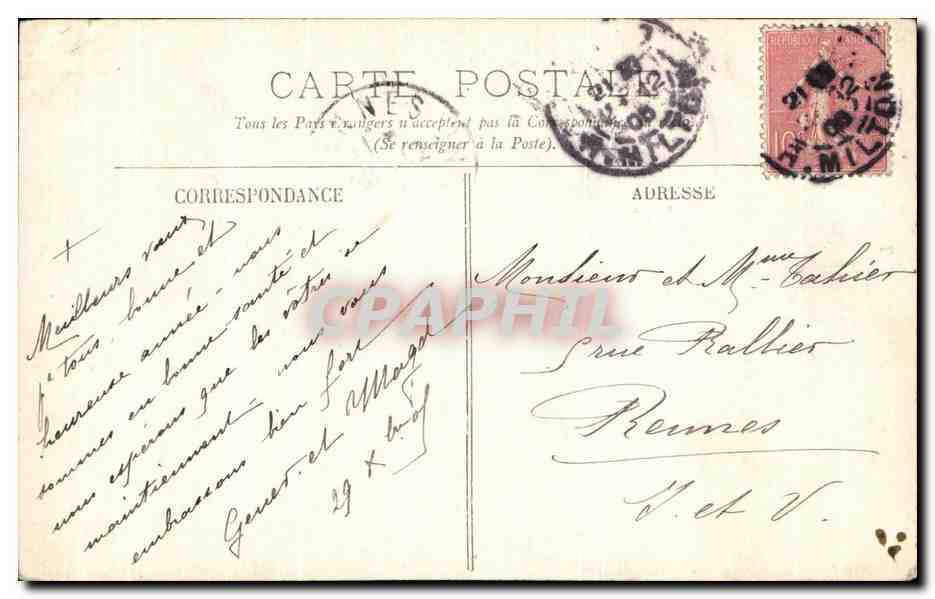 CARTE POSTALE
Tous les Pays étrangers n'acceptent pas la Correspondance au recto
(Se renseigner à la Poste).
CORRESPONDANCE
Meilleurs vœux
pr tous, bonne et
heureuse année - nous
sommes en bonne santé et
nous espérons que les vôtres se
maintiennent - nous vous
embrassons bien fort
Genev. et Magd
29 X
ADRESSE
Monsieur et Mme Tahier
5 rue Rallier
Rennes
I. et V.
REPUBLIQUE
10
21
12
05
MILTON
21
12
05
MILTON
NES
CPAPHIL